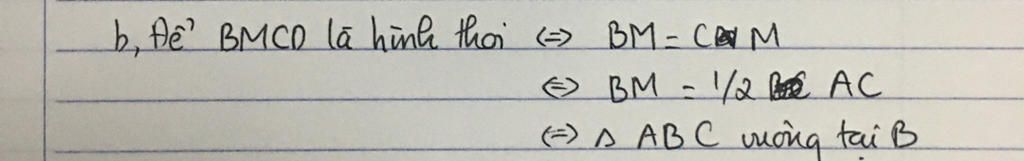 b, Để BMCD là hình thoi <=> BM = CM
<=> BM = 1/2 AC
<=> Δ ABC vuông tại B